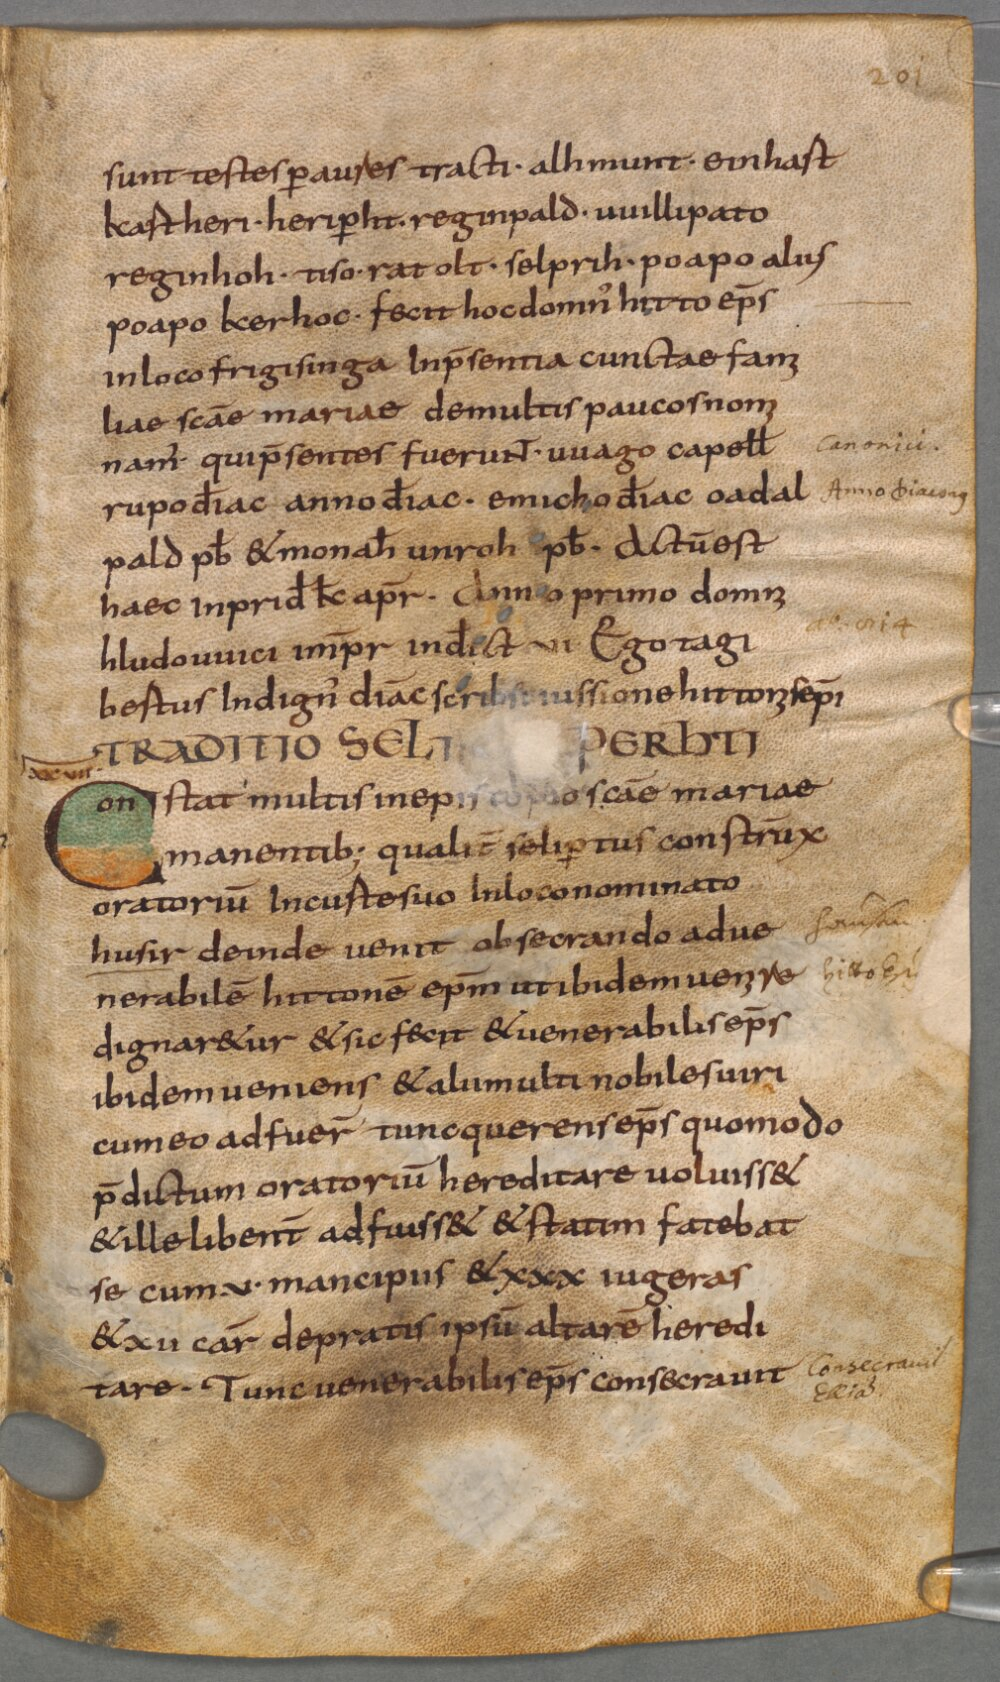 201
sunt testes ꝑ aures tracti · alhmunt · einhast
kastheri · heriꝑht · reginpald · uuillipato
reginhoh · tiso · ratolt · selprih · poapo alius
poapo kerhoc · fecit hoc domnꝰ hitto ep̄s
in loco frigisinga In p̄sentia cunctae fami
liae scāe mariae de multis paucos nomi
nam̄ qui p̄sentes fuerunt · uuago capell
Canonici.
rupo diac anno diac · emicho diac oadal
Anno diaconꝰ
pald pb & monah unroh pb · Actū est
haec In prid kł apr̄ · Anno primo domni
hludouuici imp̄r indict vi Ego tagi
bestus Indignꝰ diāc scribsi iussione hittonis ep̄i
TRADITIO SELI PERHTI
xxvii
Constat multis in episcopio scāe mariae
manentib; qualit̄ seliꝑtus construx̄
oratoriū In custe suo In loco nominato
husir deinde uenit obsecrando ad ue
nerabilē hittonē ep̄m ut ibidem uenire
hitto Ep̄s
dignar&ur & sic fecit & uenerabilis ep̄s
ibidem ueniens & alii multi nobiles uiri
cum eo adfuer̄ tunc querens ep̄s quomodo
p̄dictum oratoriū hereditare uoluiss&
& ille libent̄ adfuiss& & statim fatebat
se cum v · mancipiis & xxx iugeras
& xii car̄ de pratis ipsū altarē heredi
tare · Tunc uenerabilis ep̄s consecrauit
Consecrauit
Eccłiā